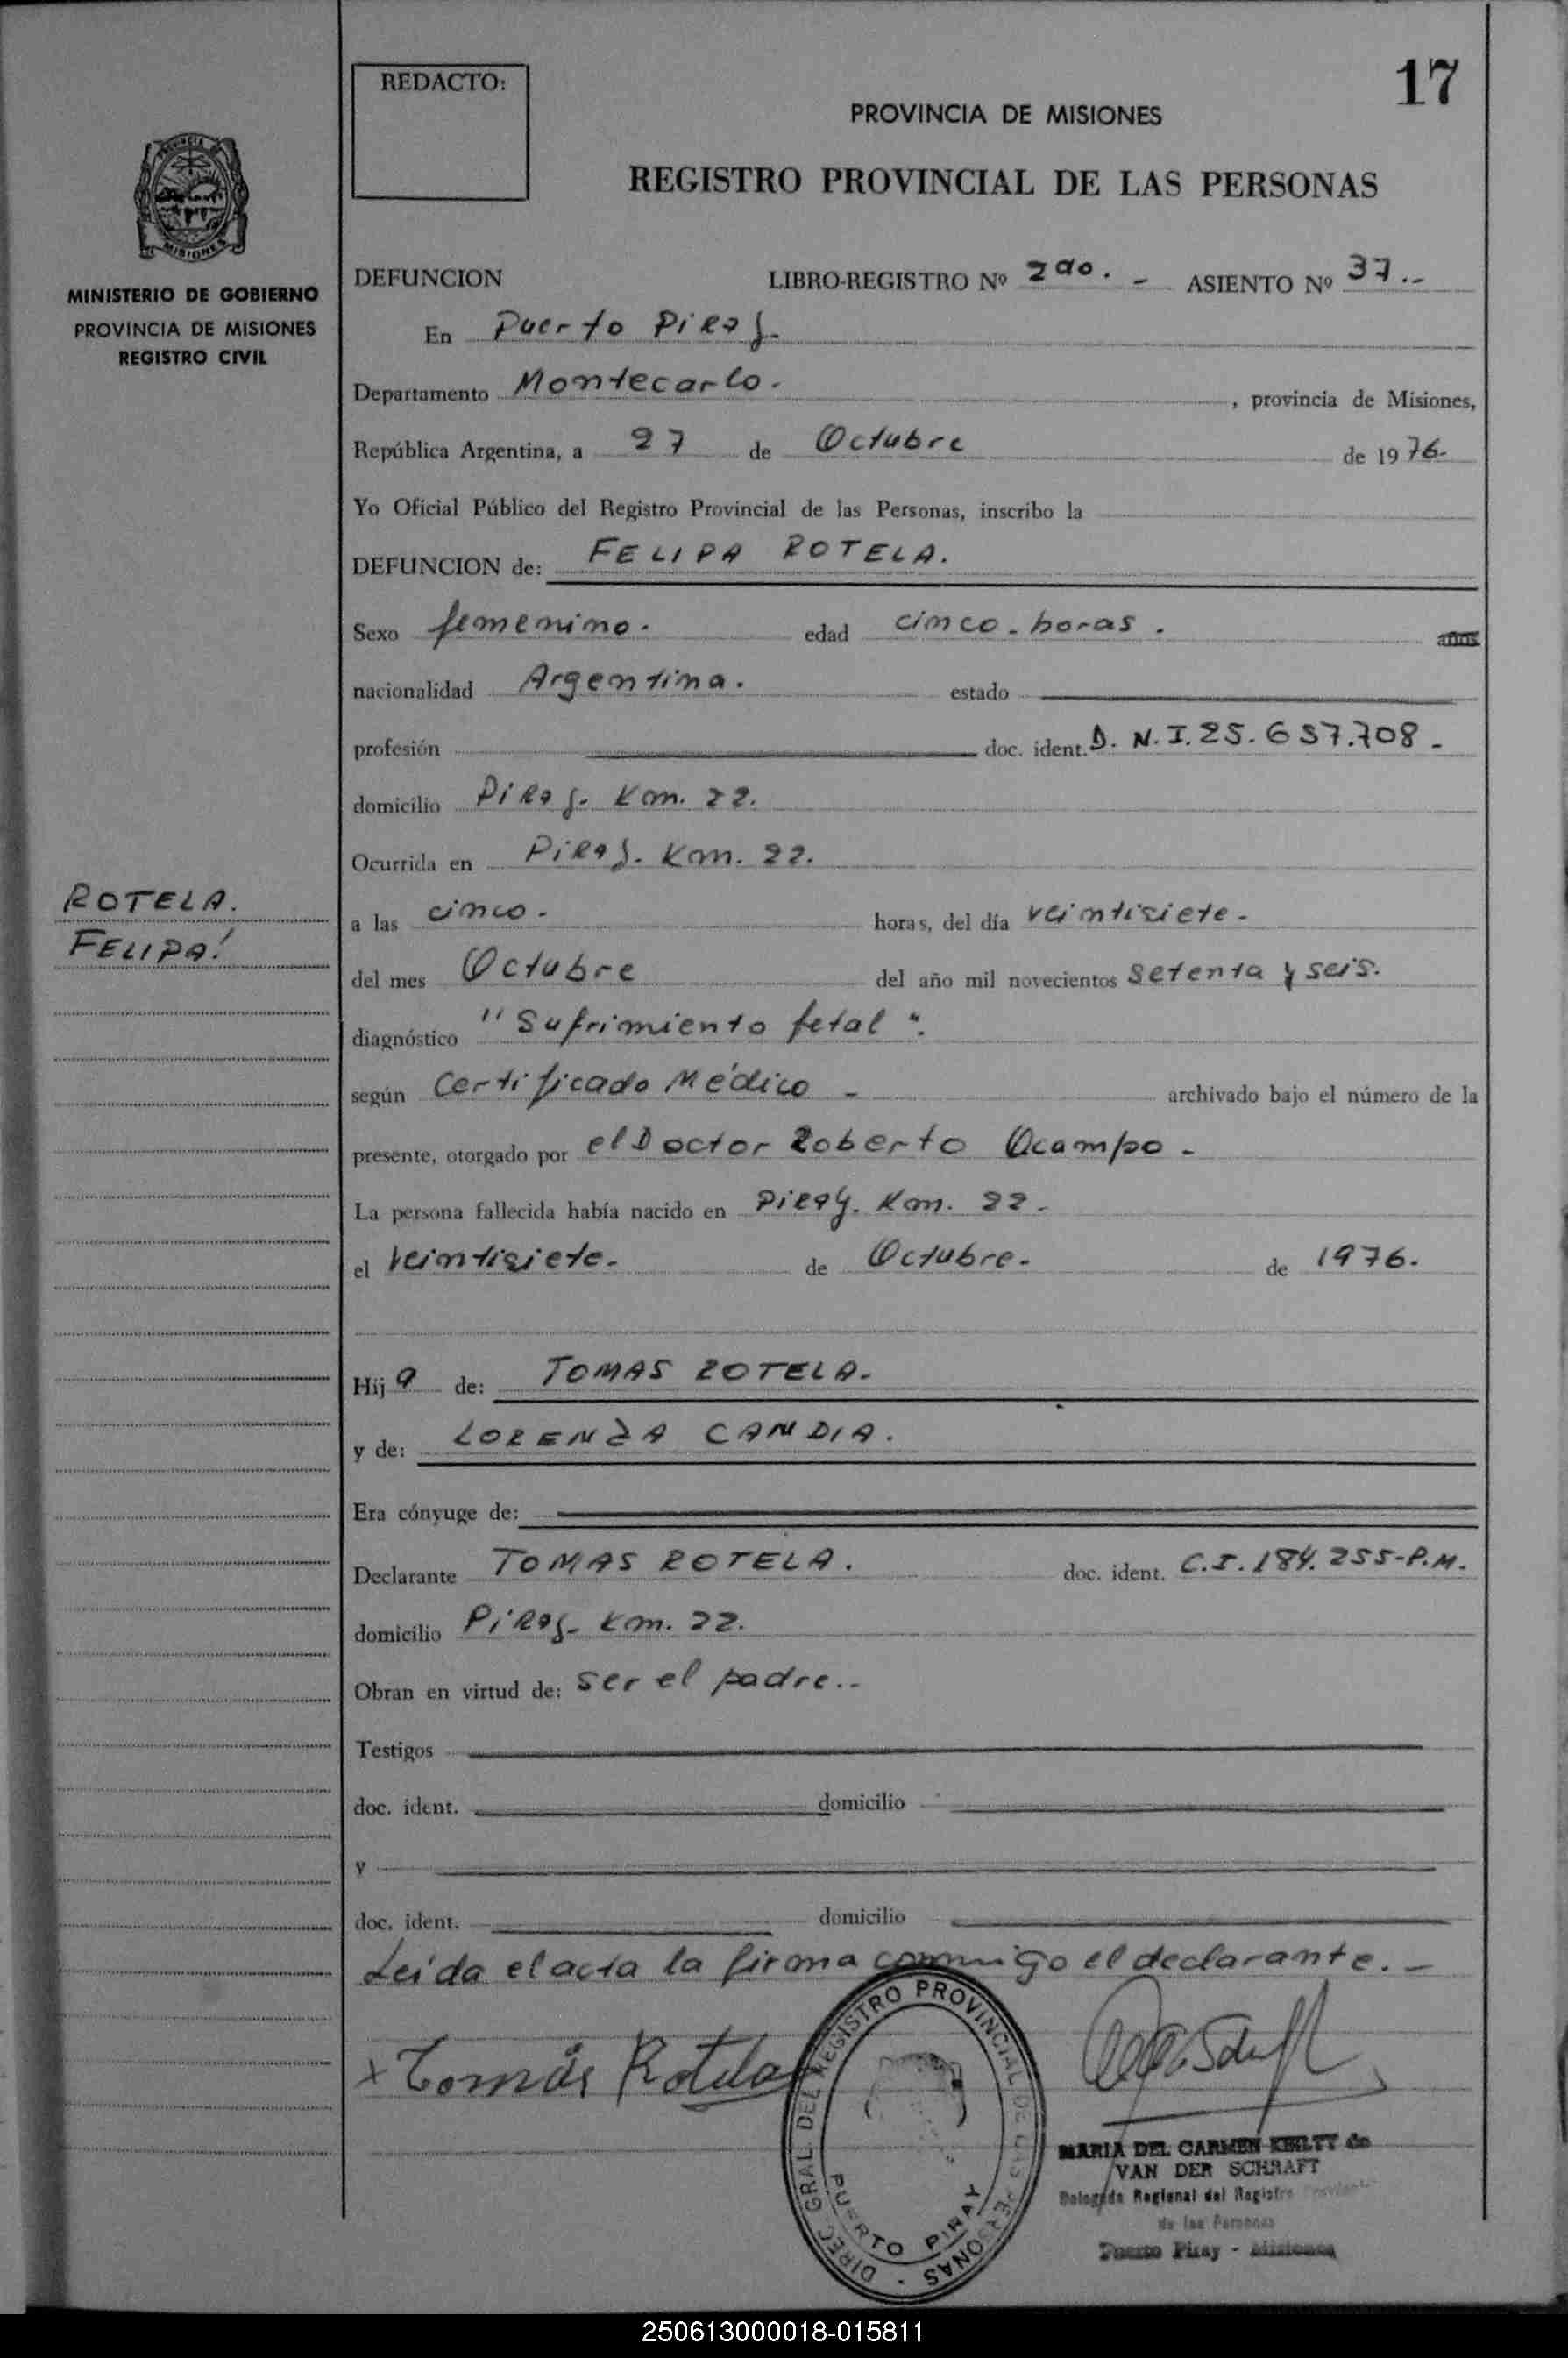 17
REDACTO:
PROVINCIA DE MISIONES
REGISTRO PROVINCIAL DE LAS PERSONAS
MISIONES
MINISTERIO DE GOBIERNO
PROVINCIA DE MISIONES
REGISTRO CIVIL
DEFUNCION LIBRO-REGISTRO Nº 2do. - ASIENTO Nº 37.-
En Puerto Piray.
Departamento Montecarlo. , provincia de Misiones,
República Argentina, a 27 de Octubre de 1976.
Yo Oficial Público del Registro Provincial de las Personas, inscribo la
DEFUNCION de: FELIPA ROTELA.
Sexo femenino. edad cinco - horas. años
nacionalidad Argentina. estado
profesión doc. ident. D. N. I. 25.657.708 -
domicilio Piray. Km. 22.
Ocurrida en Piray. Km. 22.
ROTELA.
FELIPA!
a las cinco - horas, del día veintisiete -
del mes Octubre del año mil novecientos setenta y seis.
diagnóstico "Sufrimiento fetal".
según Certificado Médico - archivado bajo el número de la
presente, otorgado por el Doctor Roberto Ocampo -
La persona fallecida había nacido en Piray. Km. 22 -
el veintisiete - de Octubre - de 1976.
Hija de: TOMAS ROTELA.
y de: LORENZA CANDIA.
Era cónyuge de:
Declarante TOMAS ROTELA. doc. ident. C.I. 184.255-P.M.
domicilio Piray - Km. 22.
Obran en virtud de: ser el padre..
Testigos
doc. ident. domicilio
y
doc. ident. domicilio
Leída el acta la firma conmigo el declarante. -
x Tomás Rotela
DIREC. GRAL. DEL REGISTRO PROVINCIAL DE LAS PERSONAS -
PUERTO PIRAY
MARIA DEL CARMEN de
VAN DER SCHRAFT
Delegada Regional del Registro
de las Personas
Puerto Piray - Misiones
250613000018-015811